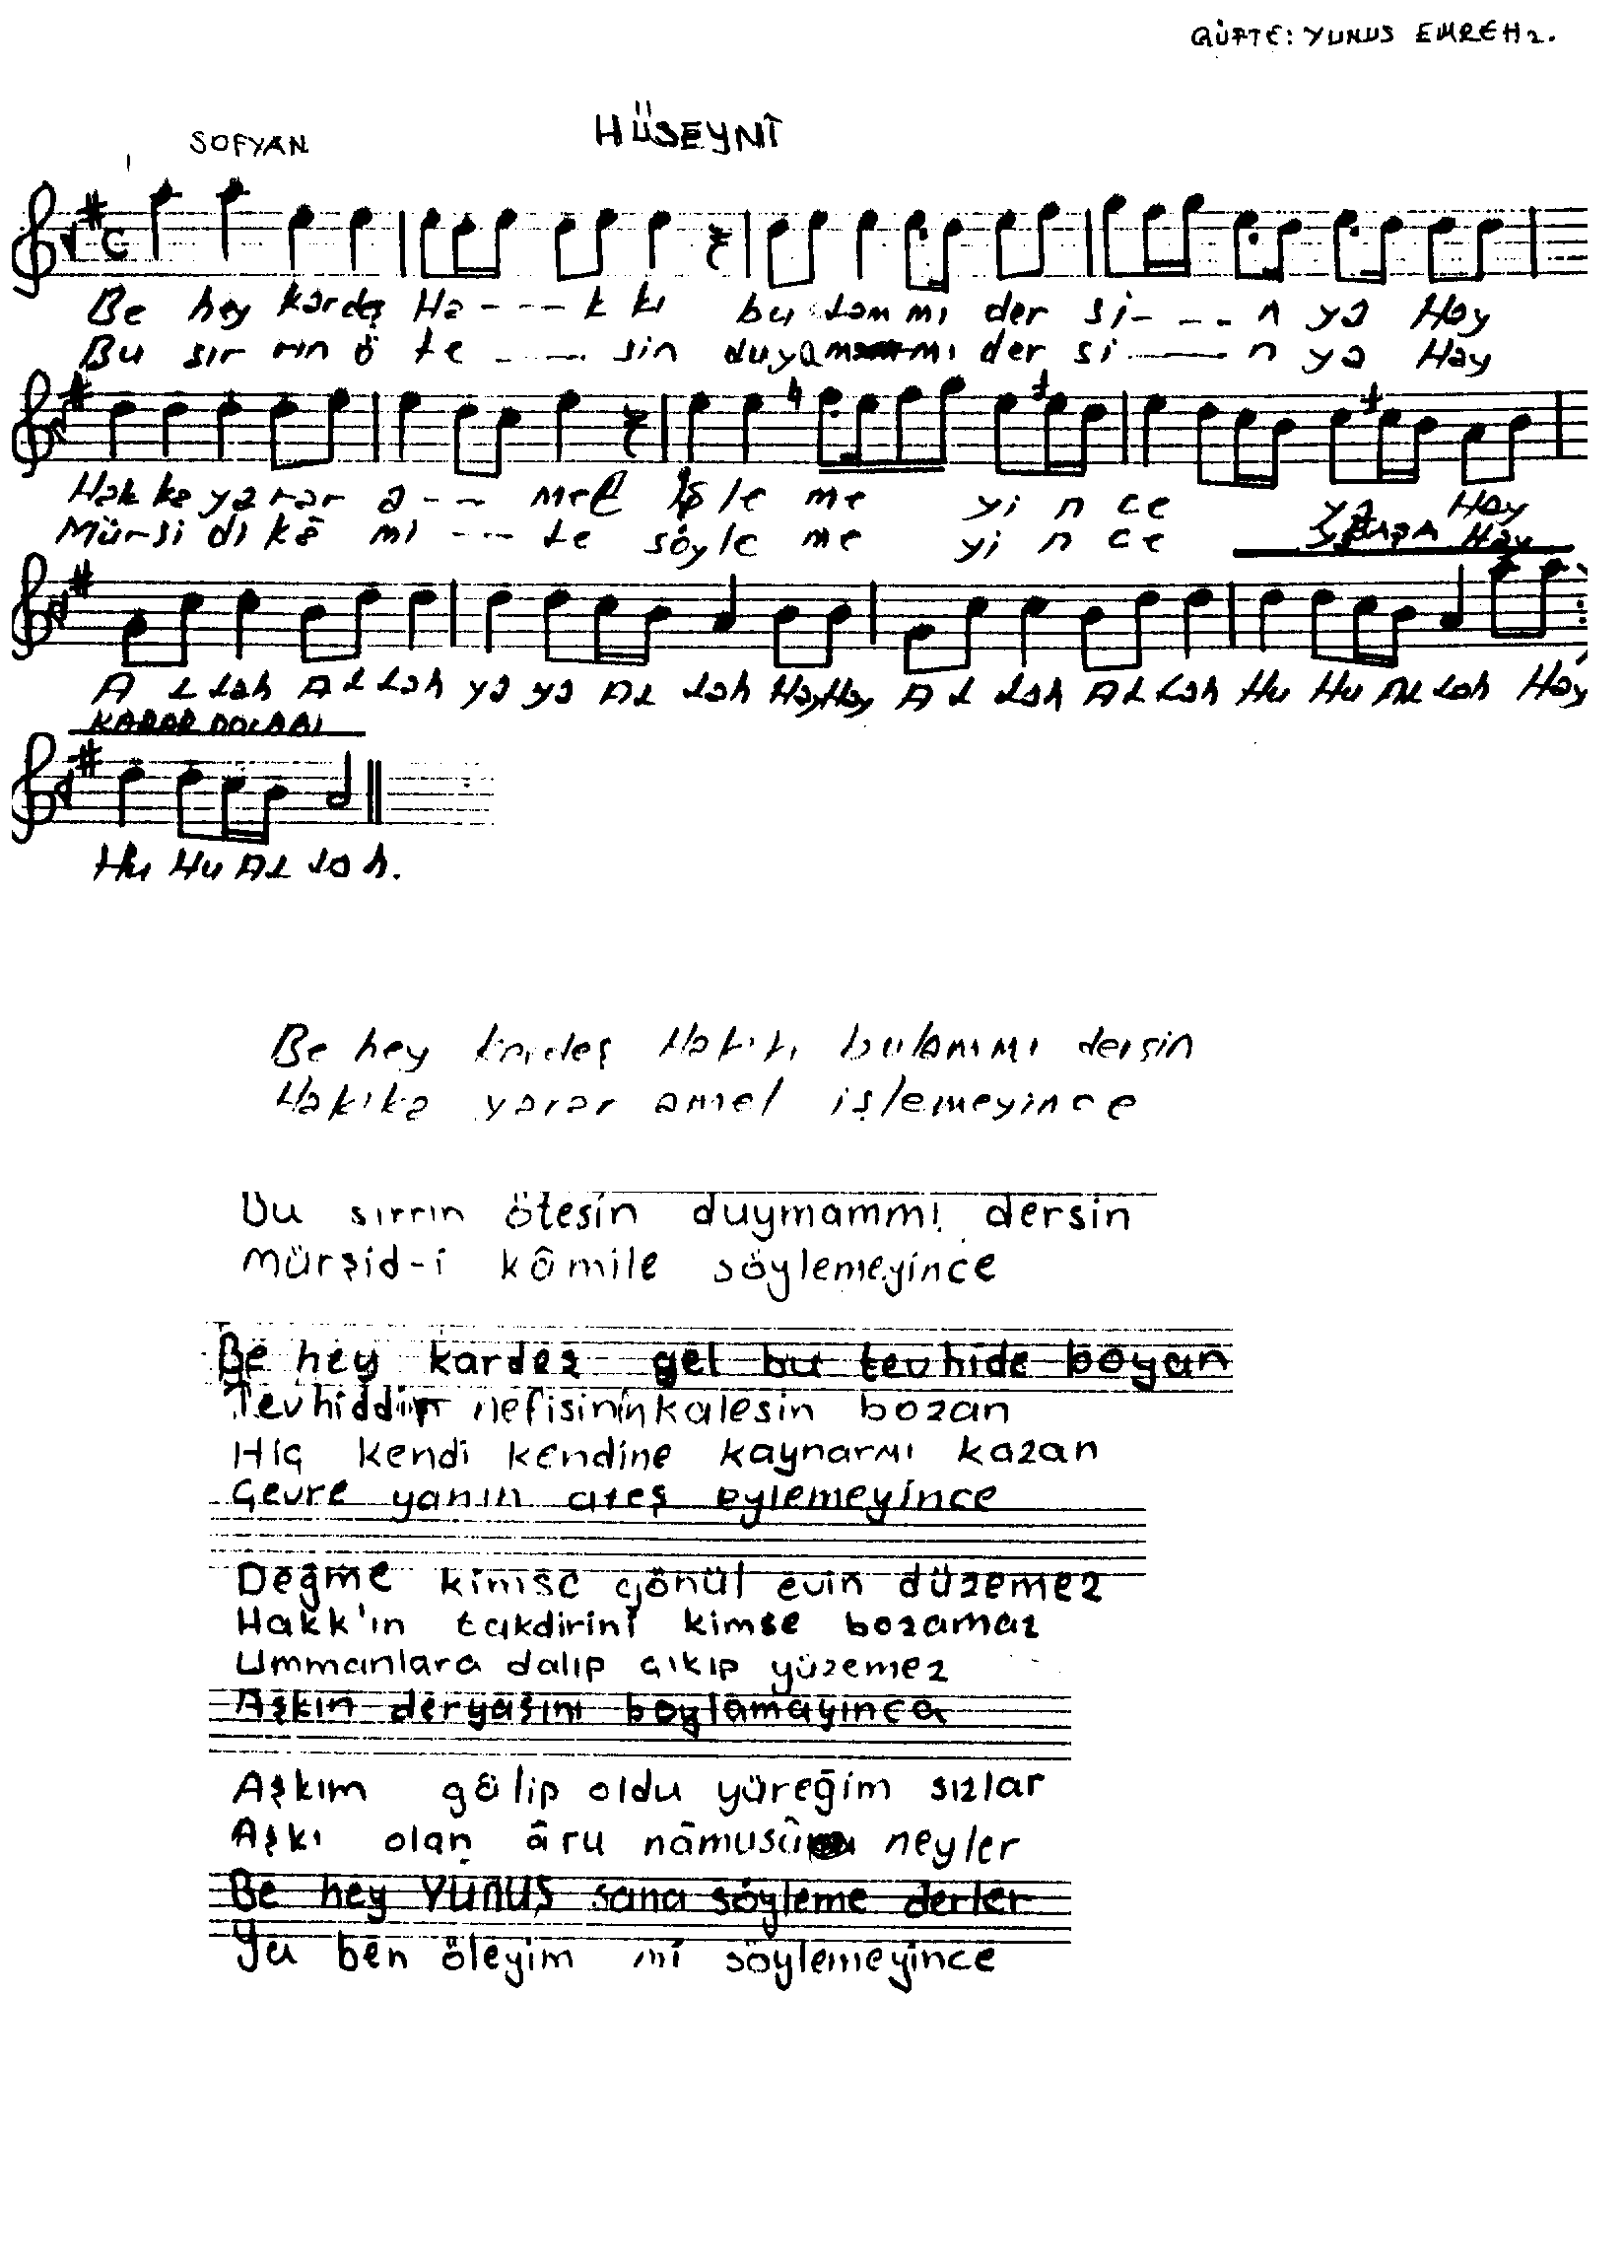 GÜFTE: YUNUS EMRE Hz.
SOFYAN
HÜSEYNÎ
Be hey kardeş Ha - - - k kı bu lam mı der si - - - n ya Hay
Bu sır rın ö te - - - sin duyam mı der si - n ya Hay
Hak ka ya rar a - - - mel İş le me yi n ce ya Hay
Mür-si di kâ mi - - - le söy le me yi n ce Hay
A L Lah A L Lah ya ya AL Lah Hay Hay A L Lah A L Lah Hu Hu AL Lah Hay
KARAR DOLABI
Hu Hu AL La h.
Be hey kardeş Hakıkı bulammı dersin
Hakıka yarar amel işlemeyince
Bu sırrın ötesin duymammı dersin
Mürşid-i kâmile söylemeyince
Be hey kardez gel bu tevhide boyan
Tevhiddir nefisinin kalesin bozan
Hiç kendi kendine kaynarmı kazan
Çevre yanın ateş eylemeyince
Değme kimse gönül evin düzemez
Hakk'ın takdirini kimse bozamaz
Ummanlara dalıp çıkıp yüzemez
Aşkın deryasını boylamayınca
Aşkım gâlip oldu yüreğim sızlar
Aşkı olan âru nâmusû neyler
Be hey YUNUS sana söyleme derler
Ya ben öleyim mi söylemeyince